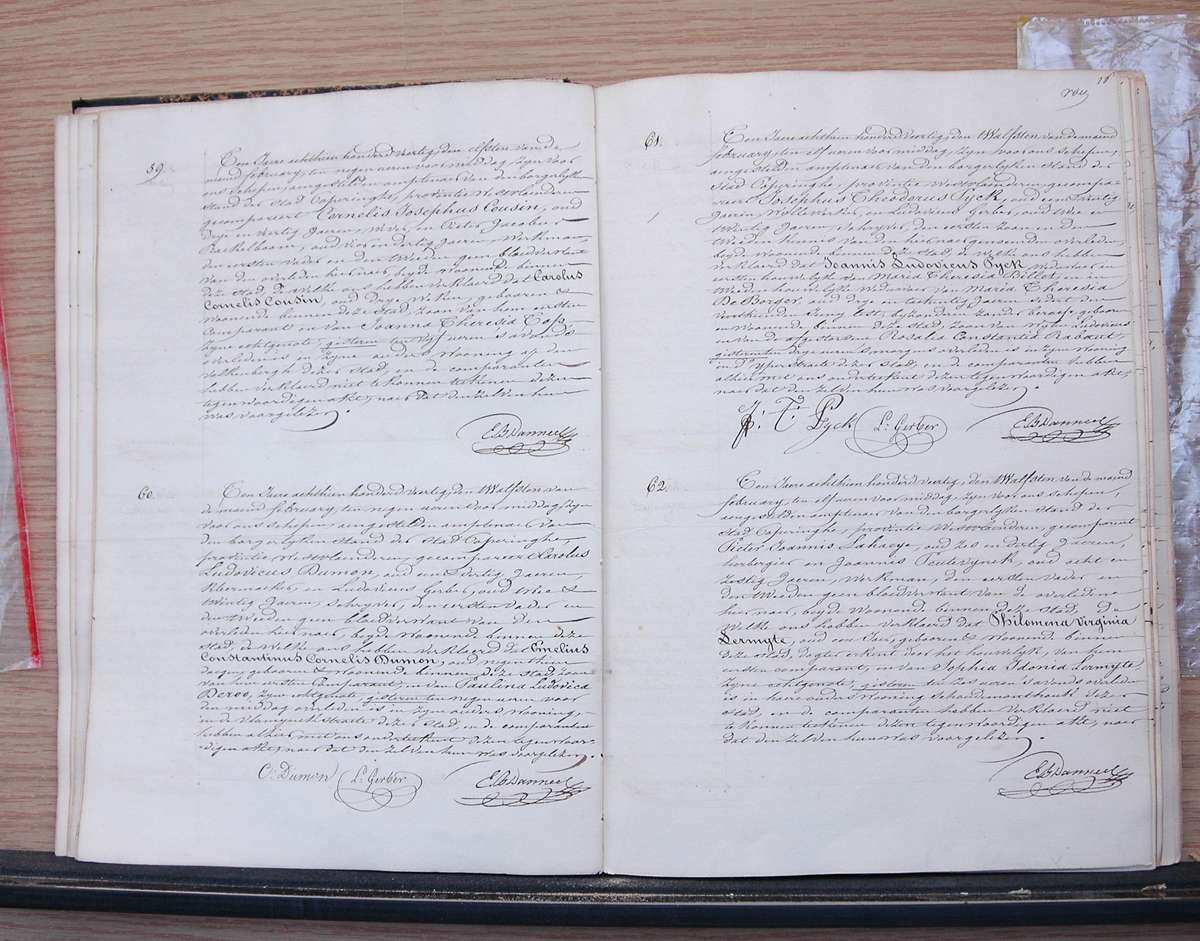 59.
Ten Jaere achthien honderd veertig, den elfsten van de
maend february, ten negen uren voormiddag, zyn voor
ons schepen, aengestelden amptenaer van den borgerlyken
stand der stad Poperinghe, provintie Westvlanderen
gecompareert Cornelis Josephus Cousin, oud
drye en veertig Jaeren, wever, en Pieter Jacobus
oud vier en dertig Jaeren, werkman,
den eersten vader en den tweeden geen bloedverwant
van den overleden hier naer, beyde woonende binnen
deze stad, de welke ons hebben verklaerd dat Carolus
Cornelis Cousin, oud drye weken, gebooren en
woonende binnen deze stad, zoon van hem eersten
comparant en van Joanna Theresia
zyne echtgenote, gisteren ten vyf uren 's avonds
overleden is in zyne ouders wooning op den
dezer stad, en de comparanten
hebben verklaerd niet te konnen teekenen dezen
tegenwoordigen akt, naer dat den zelven hun
was voorgelezen.
E. B. Danneel
60.
Ten Jaere achthien honderd veertig, den twalfsten van
de maend february, ten negen uren voormiddag, zyn
voor ons schepen, aengestelden amptenaer van
den borgerlyken stand der stad Poperinghe,
provintie Westvlanderen, gecompareert Carolus
Ludovicus Dumon, oud een en dertig Jaeren,
en Ludovicus Gerber, oud twee en
twintig Jaeren, schryver, den eersten vader en
den tweeden geen bloedverwant van den
overleden hier naer, beyde woonend binnen deze
stad, de welke ons hebben verklaerd dat Cornelius
Constantinus Cornelis Dumon, oud negenthien
dagen, gebooren en woonende binnen deze stad, zoon
van hem eersten comparant, en van Paulina Ludovica
Deroo, zyne echtgenote, gisteren ten negen uren voor
den middag overleden is in zyne ouders wooning
in de Vlamynckstraete dezer stad, en de comparanten
hebben alhier met ons onderteekent dezen tegenwoor-
digen akt, naer dat den zelven hun was voorgelezen.
C. Dumon L: Gerber E. B. Danneel
61.
Ten Jaere achthien honderd veertig, den twalfsten van de maend
february, ten elf uren voormiddag, zyn voor ons schepen,
aengestelden amptenaer van den borgerlyken stand der
stad Poperinghe, provintie Westvlanderen, gecompa-
reert Josephus Theodorus Pyck, oud een en veertig
Jaeren, wollewerker, en Ludovicus Gerber, oud twee en
twintig Jaeren, schryver, den eersten zoon en den
tweeden kennis van de hier naer genoemden overleden,
beyde woonende binnen deze stad, de welke ons hebben
verklaerd dat Joannis Ludovicus Pyck, weduwaer in
eersten houwelyk van Maria Theresia Billet, en in
tweede houwelyk weduwaer van Maria Theresia
De Borger, oud drye en tachentig Jaeren
zonder beroep, gebooren
en woonende binnen deze stad, zoon van wylen Ludovicus
en van de afgestorven Rosalia Constantia Rabaut,
gisteren ten drye uren 's morgens overleden is in zyne wooning
in d'Yper straete dezer stad, en de comparanten hebben
alhier met ons onderteekent dezen tegenwoordigen akt,
naer dat den zelven hun was voorgelezen.
J: T: Pyck L: Gerber E. B. Danneel
62.
Ten Jaere achthien honderd veertig, den twalfsten van de maend
february, ten elf uren voor middag, zyn voor ons schepen,
aengestelden amptenaer van den borgerlyken stand der
stad Poperinghe, provintie Westvlanderen, gecompareert
Pieter Joannis Lahaeye, oud zes en dertig Jaeren,
herbergier en Joannis oud acht en
zestig Jaeren, werkman den eersten vader en
den tweeden geen bloedverwant van de overledene
hier naer, beyde woonend binnen deze stad, de
welke ons hebben verklaerd dat Philomena Virginia
Lermyte, oud een Jaer, gebooren en woonend binnen
deze stad, dogter erkent door het houwelyk, van hem
eersten comparant, en van Sophia Idonia Lermyte,
zyne echtgenote, gisteren ten zes uren 's avonds overleden
is in haer ouders wooning dezer
stad, en de comparanten hebben verklaerd niet
te konnen teekenen dezen tegenwoordigen akt, naer
dat den zelven hun was voorgelezen.
E. B. Danneel